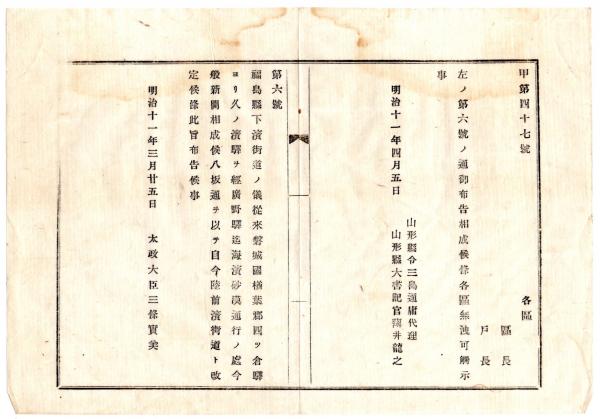 甲第四十七號
各區
區長
戶長
左ノ第六號ノ通御布告相成候條各區無洩可觸示
事
明治十一年四月五日
山形縣令三島通庸代理
山形縣大書記官薄井龍之
第六號
福島縣下濱街道ノ儀從來磐城國楢葉郡四ツ倉驛
ヨリ久ノ濱驛ヲ經廣野驛迄海濱砂漠通行ノ處今
般新開相成候八坂通ヲ以テ自今陸前濱街道ト改
定候條此旨布告候事
明治十一年三月廿五日
太政大臣三條實美